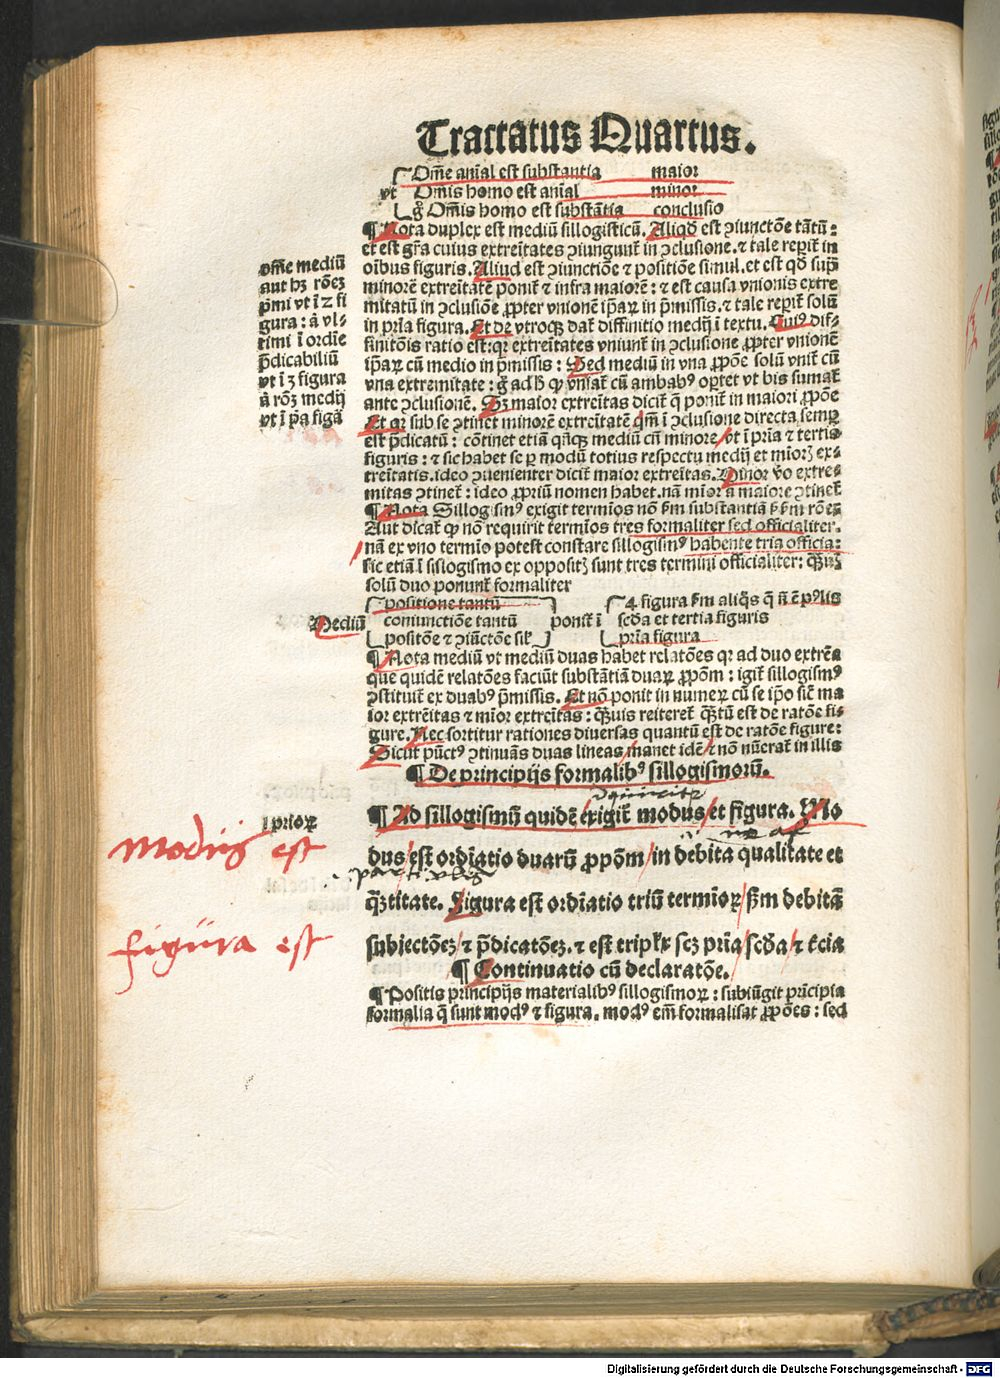 Tractatus Quartus.
Om̄e anīal est substantia maior
vt Om̄is homo est anīal minor
g̊ Om̄is homo est substātia conclusio
¶ Nota duplex est mediū sillogisticū. Aliqđ est ꝯiunctōe tātū:
et est gr̄a cuius extreītates ꝯiungunt̄ in ꝯclusione. ⁊ tale repit̄ in
oībus figuris. Aliud est ꝯiunctiōe ⁊ positiōe simul. et est qđ sup̄
minorē extreītatē ponit̄ ⁊ infra maiorē: ⁊ est causa vnionis extre
mitatū in ꝯclusiōe ꝓpter vnionē ip̄aꝝ in p̄missis. ⁊ tale repit̄ solū
in pr̄ia figura. Et de vtroqꝫ dat̄ diffinitio medij ī textu. Cuiꝰ dif-
finitōis ratio est: qꝛ extreītates vniunt̄ in ꝯclusione ꝓpter vnionē
ip̄aꝝ cū medio in p̄missis: Sed mediū in vna ꝓpōe solū vnit̄ cū
vna extremitate: g̊ ad hͦ ꝙ vniat̄ cū ambabꝰ oꝑtet vt bis sumat̄
ante ꝯclusionē. Sꝫ maior extreītas dicit̄ q̄ ponit̄ in maiori ꝓpōe
Et qꝛ sub se ꝯtinet minorē extreītatē qm̄ ī ꝯclusione directa semꝑ
est p̄dicatū: cōtinet etiā qn̄qꝫ mediū cū minore vt ī pr̄ia ⁊ tertia
figuris: ⁊ sic habet se ꝑ modū totius respectu medij et mioris ex-
treītatis. ideo ꝯuenienter dicit̄ maior extreītas. Minor v̄o extre-
mitas ꝯtinet̄: ideo ꝓpriū nomen habet. nā mīor a maiore ꝯtinet̄
¶ Nota Sillogismꝰ exigit termīos nō ẜm substantiā sꝫ ẜm rōeꝫ
Aut dicat̄ ꝙ nō requirit termīos tres formaliter sed officialiter.
nā ex vno termīo potest constare sillogismꝰ habente tria officia:
sic etiā ī sislogismo ex oppositꝭ sunt tres termini officialiter: qͣuis
solū duo ponunt̄ formaliter
positione tantū
coniunctiōe tantū
positōe ⁊ ꝯiūctōe sil̄
ponit̄ ī
4 figura ẜm aliq̄s q̄ ñ ē pͥalis
scd̄a et tertia figuris
pr̄ia figura
Mediū
¶ Nota mediū vt mediū duas habet relatōes qꝛ ad duo extrēa
que quidē relatōes faciūt substātiā duaꝝ ꝓpōm: igit̄ sillogismꝰ
ꝯstituit̄ ex duabꝰ p̄missis. Et nō ponit̄ in numeꝝ cū se ip̄o sic̄ ma
ior extreītas ⁊ mīor extreītas: qͣuis reiteret̄ qͣtū est de ratōe fi-
gure. Nec sortitur rationes diuersas quantū est de ratōe figure:
Sicut pūctꝰ ꝯtinuās duas lineas manet idē ⁊ nō nūerat̄ in illis
¶ De principijs formalibꝰ sillogismorū.
¶ Ad sillogismū quidē exigit̄ modus et figura. Mo
dus est ordīatio duarū ꝓpōm in debita qualitate et
qͣ̄titate. Figura est ordīatio triū termīoꝝ ẜm debitā
subiectōeꝫ ⁊ p̄dicatōeꝫ. ⁊ est triplex scꝫ pr̄ia scd̄a ⁊ t̄cia
¶ Continuatio cū declaratōe.
¶ Positis principijs materialibꝰ sillogismoꝝ: subiūgit prīcipia
formalia q̄ sunt modꝰ ⁊ figura. modꝰ em̄ formalisat ꝓpōes: sed
om̄e mediū
aut hꝫ rōeꝫ
p̄mi vt ī 2 fi
gura: a vl-
timi ī ordīe
p̄dicabiliū
vt ī 3 figura
a rōꝫ medij
vt ī pͥa figā
I prioꝝ
Modus est
figura est
Digitalisierung gefördert durch die Deutsche Forschungsgemeinschaft - DFG